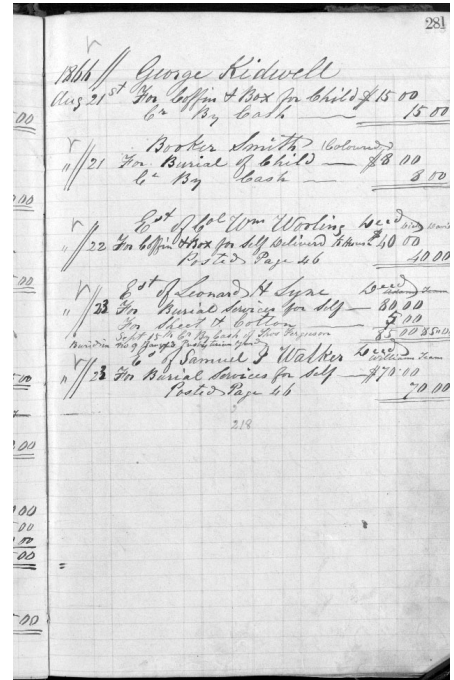 281
1866 George Kidwell
Aug 21st For Coffin & Box for Child $15 00
Cr By Cash 15 00
Booker Smith (Coloured)
" 21 For Burial of Child $8 00
Cr By Cash 8 00
Est of Col Wm Worling Decd
" 22 For Coffin & Box for Self Deliverd $40 00
Posted Page 46 40 00
Est of Leonard H Syne Decd
" 23 For Burial Services for Self 80 00
For Sheet & Cotton 5 00
Sept 15 Cr By Cash of Thos Ferguson 85 00
Buried in No 9
Est of Samuel J Walker Decd
" 23 For Burial Services for Self $70 00
Posted Page 46 70 00
218